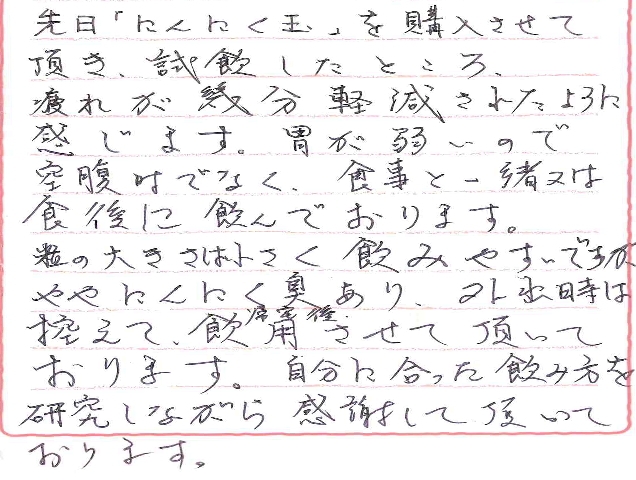 先日「にんにく玉」を購入させて
頂き、試飲したところ、
疲れが幾分軽減されたように
感じます。胃が弱いので
空腹時でなく、食事と一緒又は
食後に飲んでおります。
粒の大きさは小さく飲みやすいですが
ややにんにく臭あり、外出時は
控えて、飲用帰宅後させて頂いて
おります。自分に合った飲み方を
研究しながら感謝して頂いて
おります。